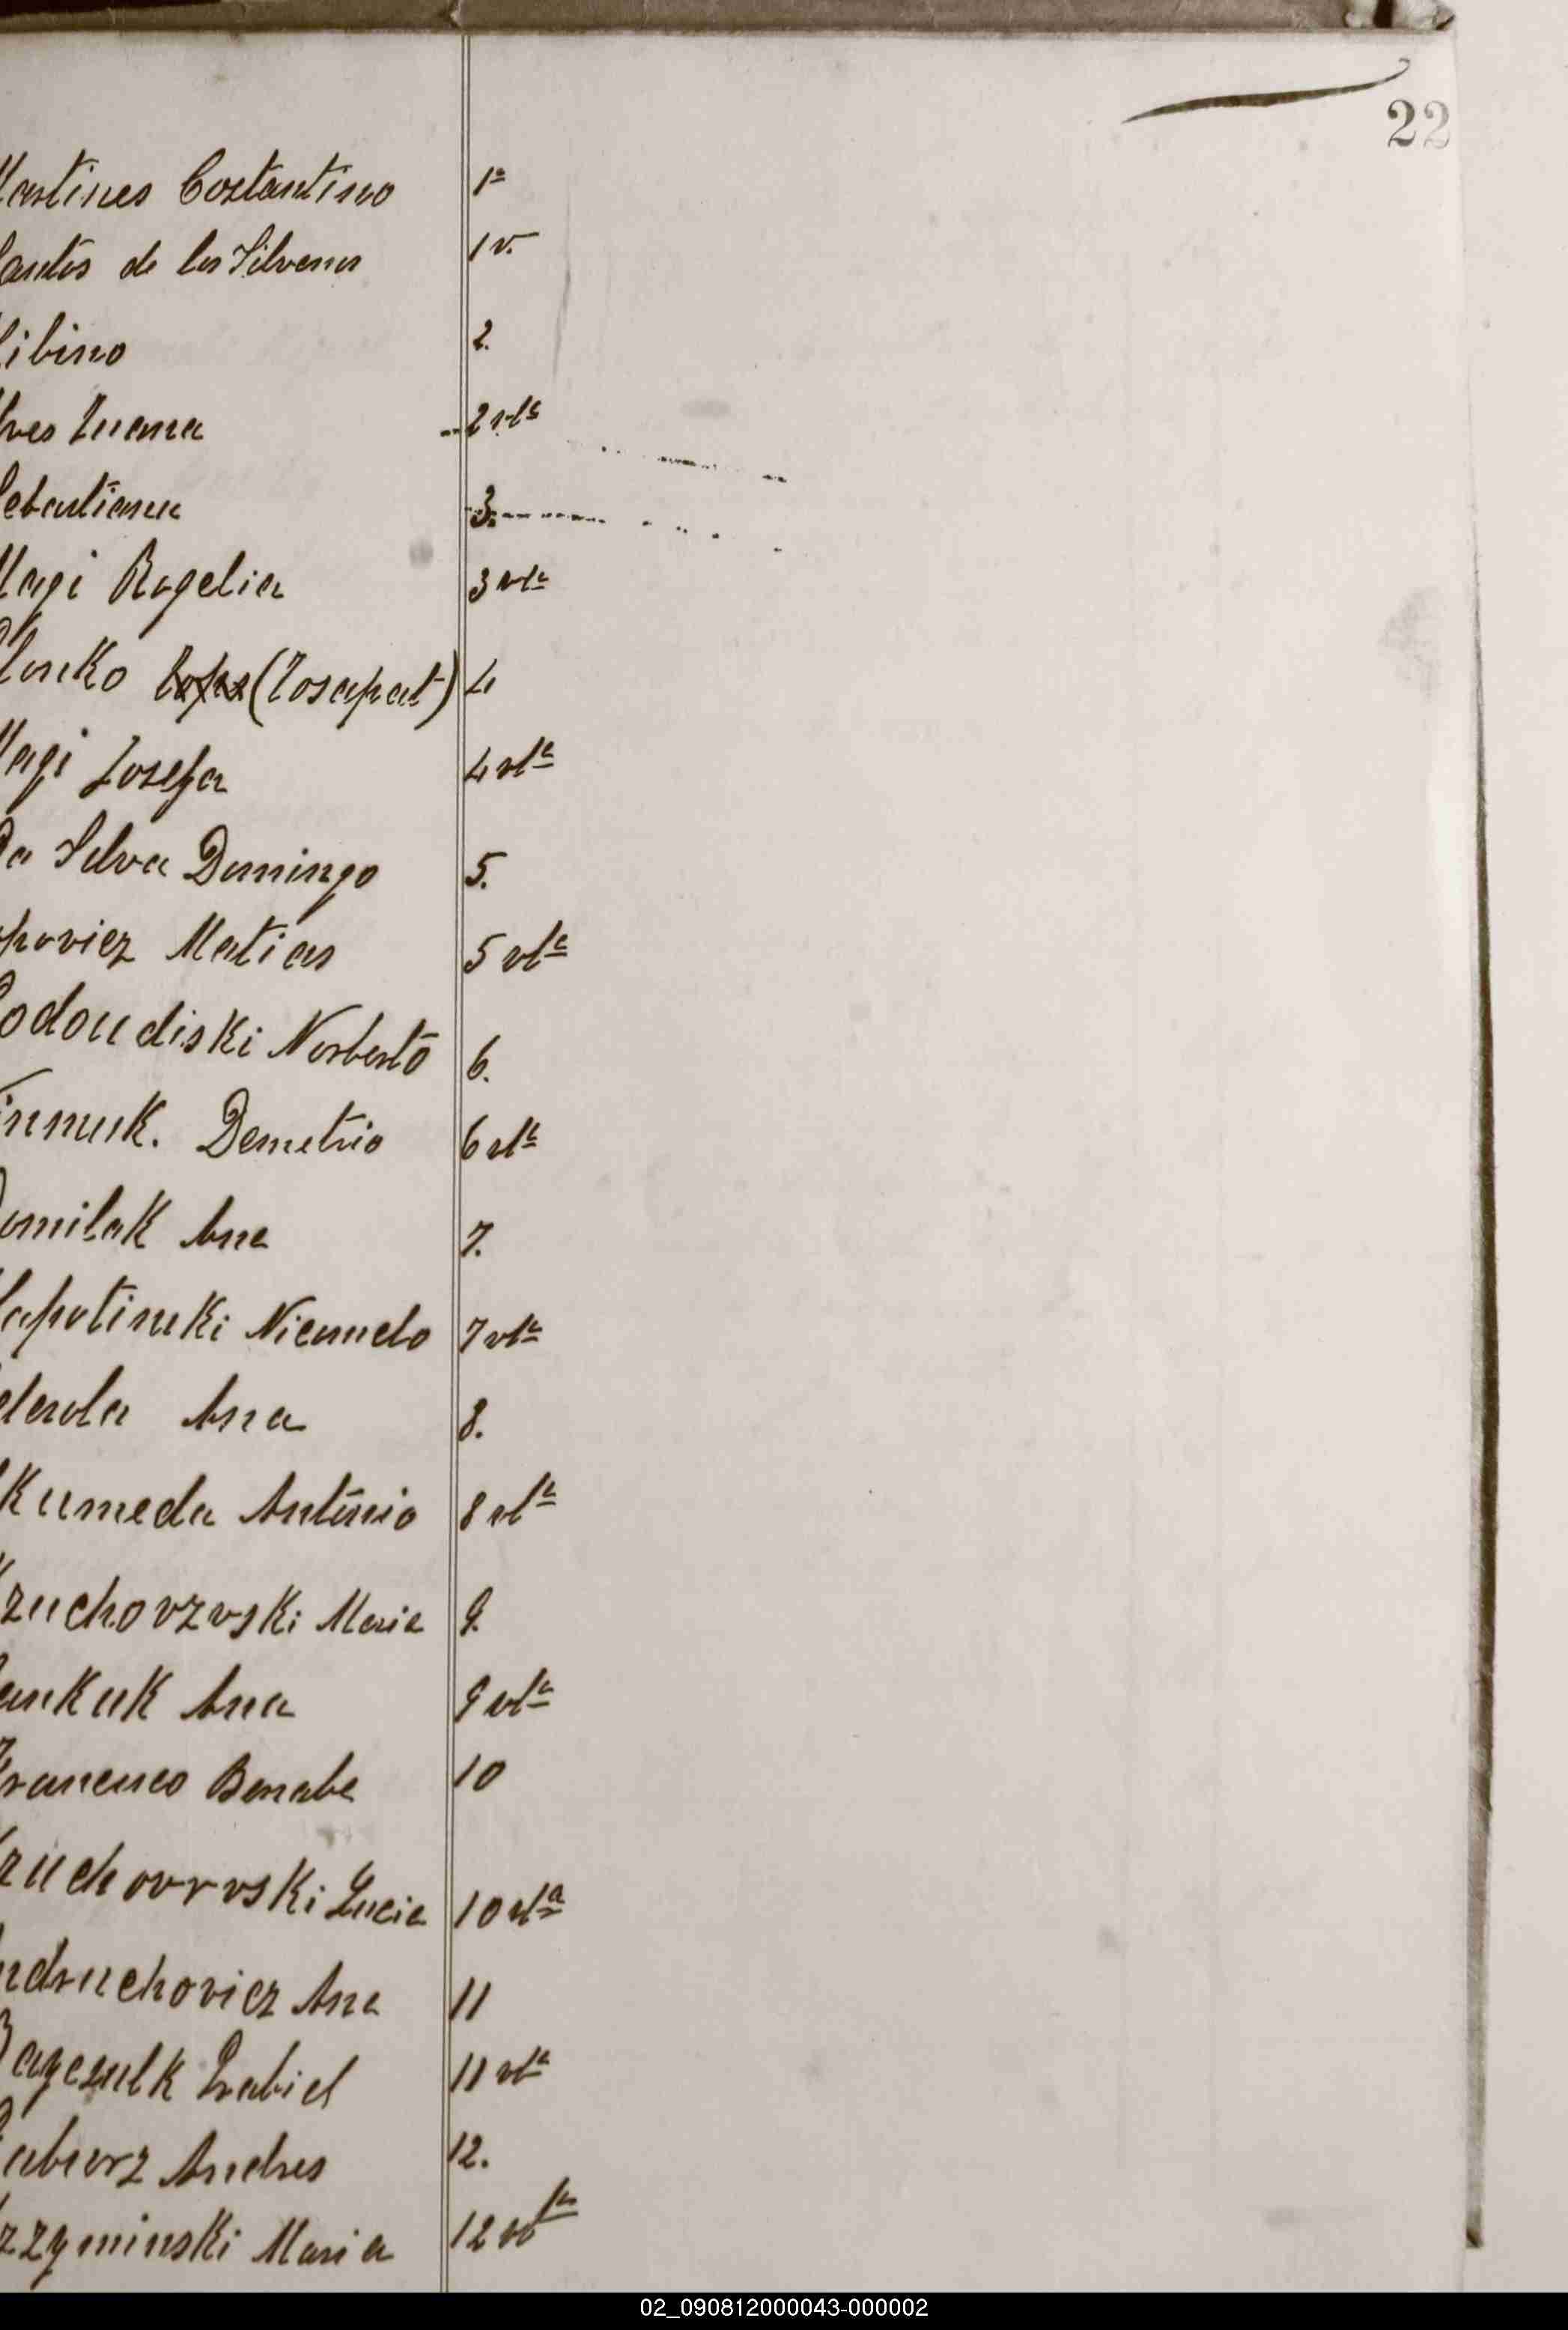 22
Martines Costantino 1a
Santos de los Silvenus 1v.
Libino 2.
lves Juana 2 vlta
Sebastiana 3.
Magi Rogelia 3 vta
Olenko (Josapat) 4
Magi Josefa 4 vta
Da Silva Domingo 5.
poviez Matias 5 vta
Podoudiski Norberto 6.
innuk. Demetrio 6 vta
omilak Ana 7.
apotinski Nicanelo 7 vta
derola Ana 8.
kumeda Antonio 8 vta
zuchovzvski Maria 9.
ankuk Ana 9 vta
Francisco Bernabe 10
zuchovrvski Lucia 10 vta
ndruchoviez Ana 11
azezulk Grabiel 11 vta
aburz Andres 12.
zzyminski Maria 12 vta
02_090812000043-000002